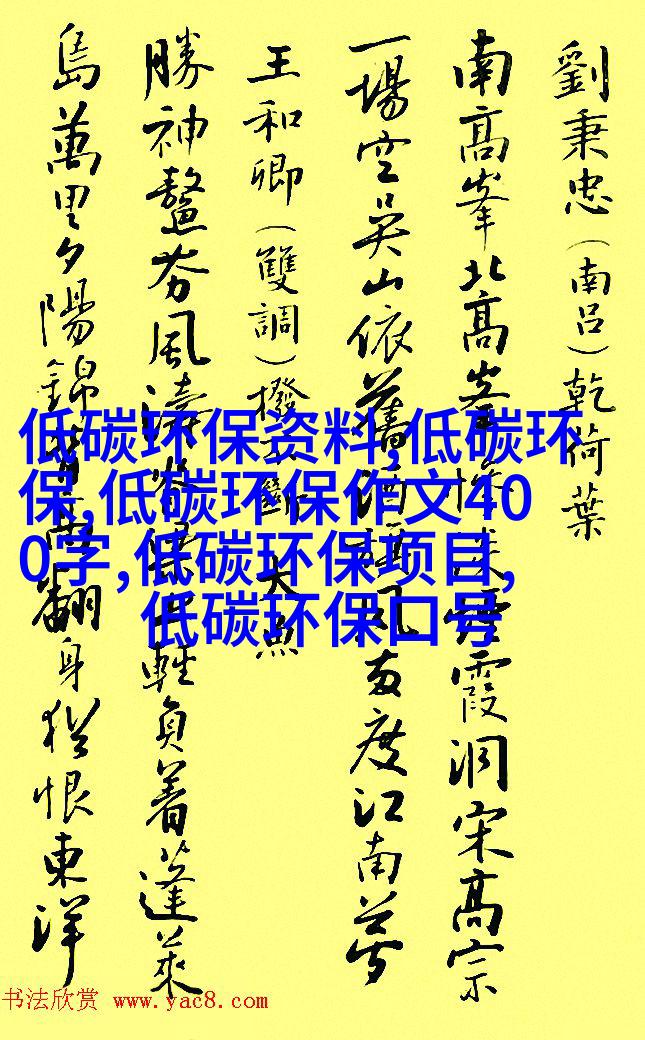 劉秉忠(南呂)乾荷葉
南高峯北高峯煙霞洞宋高宗
一場空吴山依舊酒旗風兩度江南夢
王和卿(雙調)撥不斷 大魚
勝神鰲夯風濤輕負着蓬萊
島萬里夕陽錦背高翻身猶恨東洋
低碳环保资料,低碳环
保,低碳环保作文40
0字,低碳环保项目,
低碳环保口号
书法欣赏 www.yac8.com